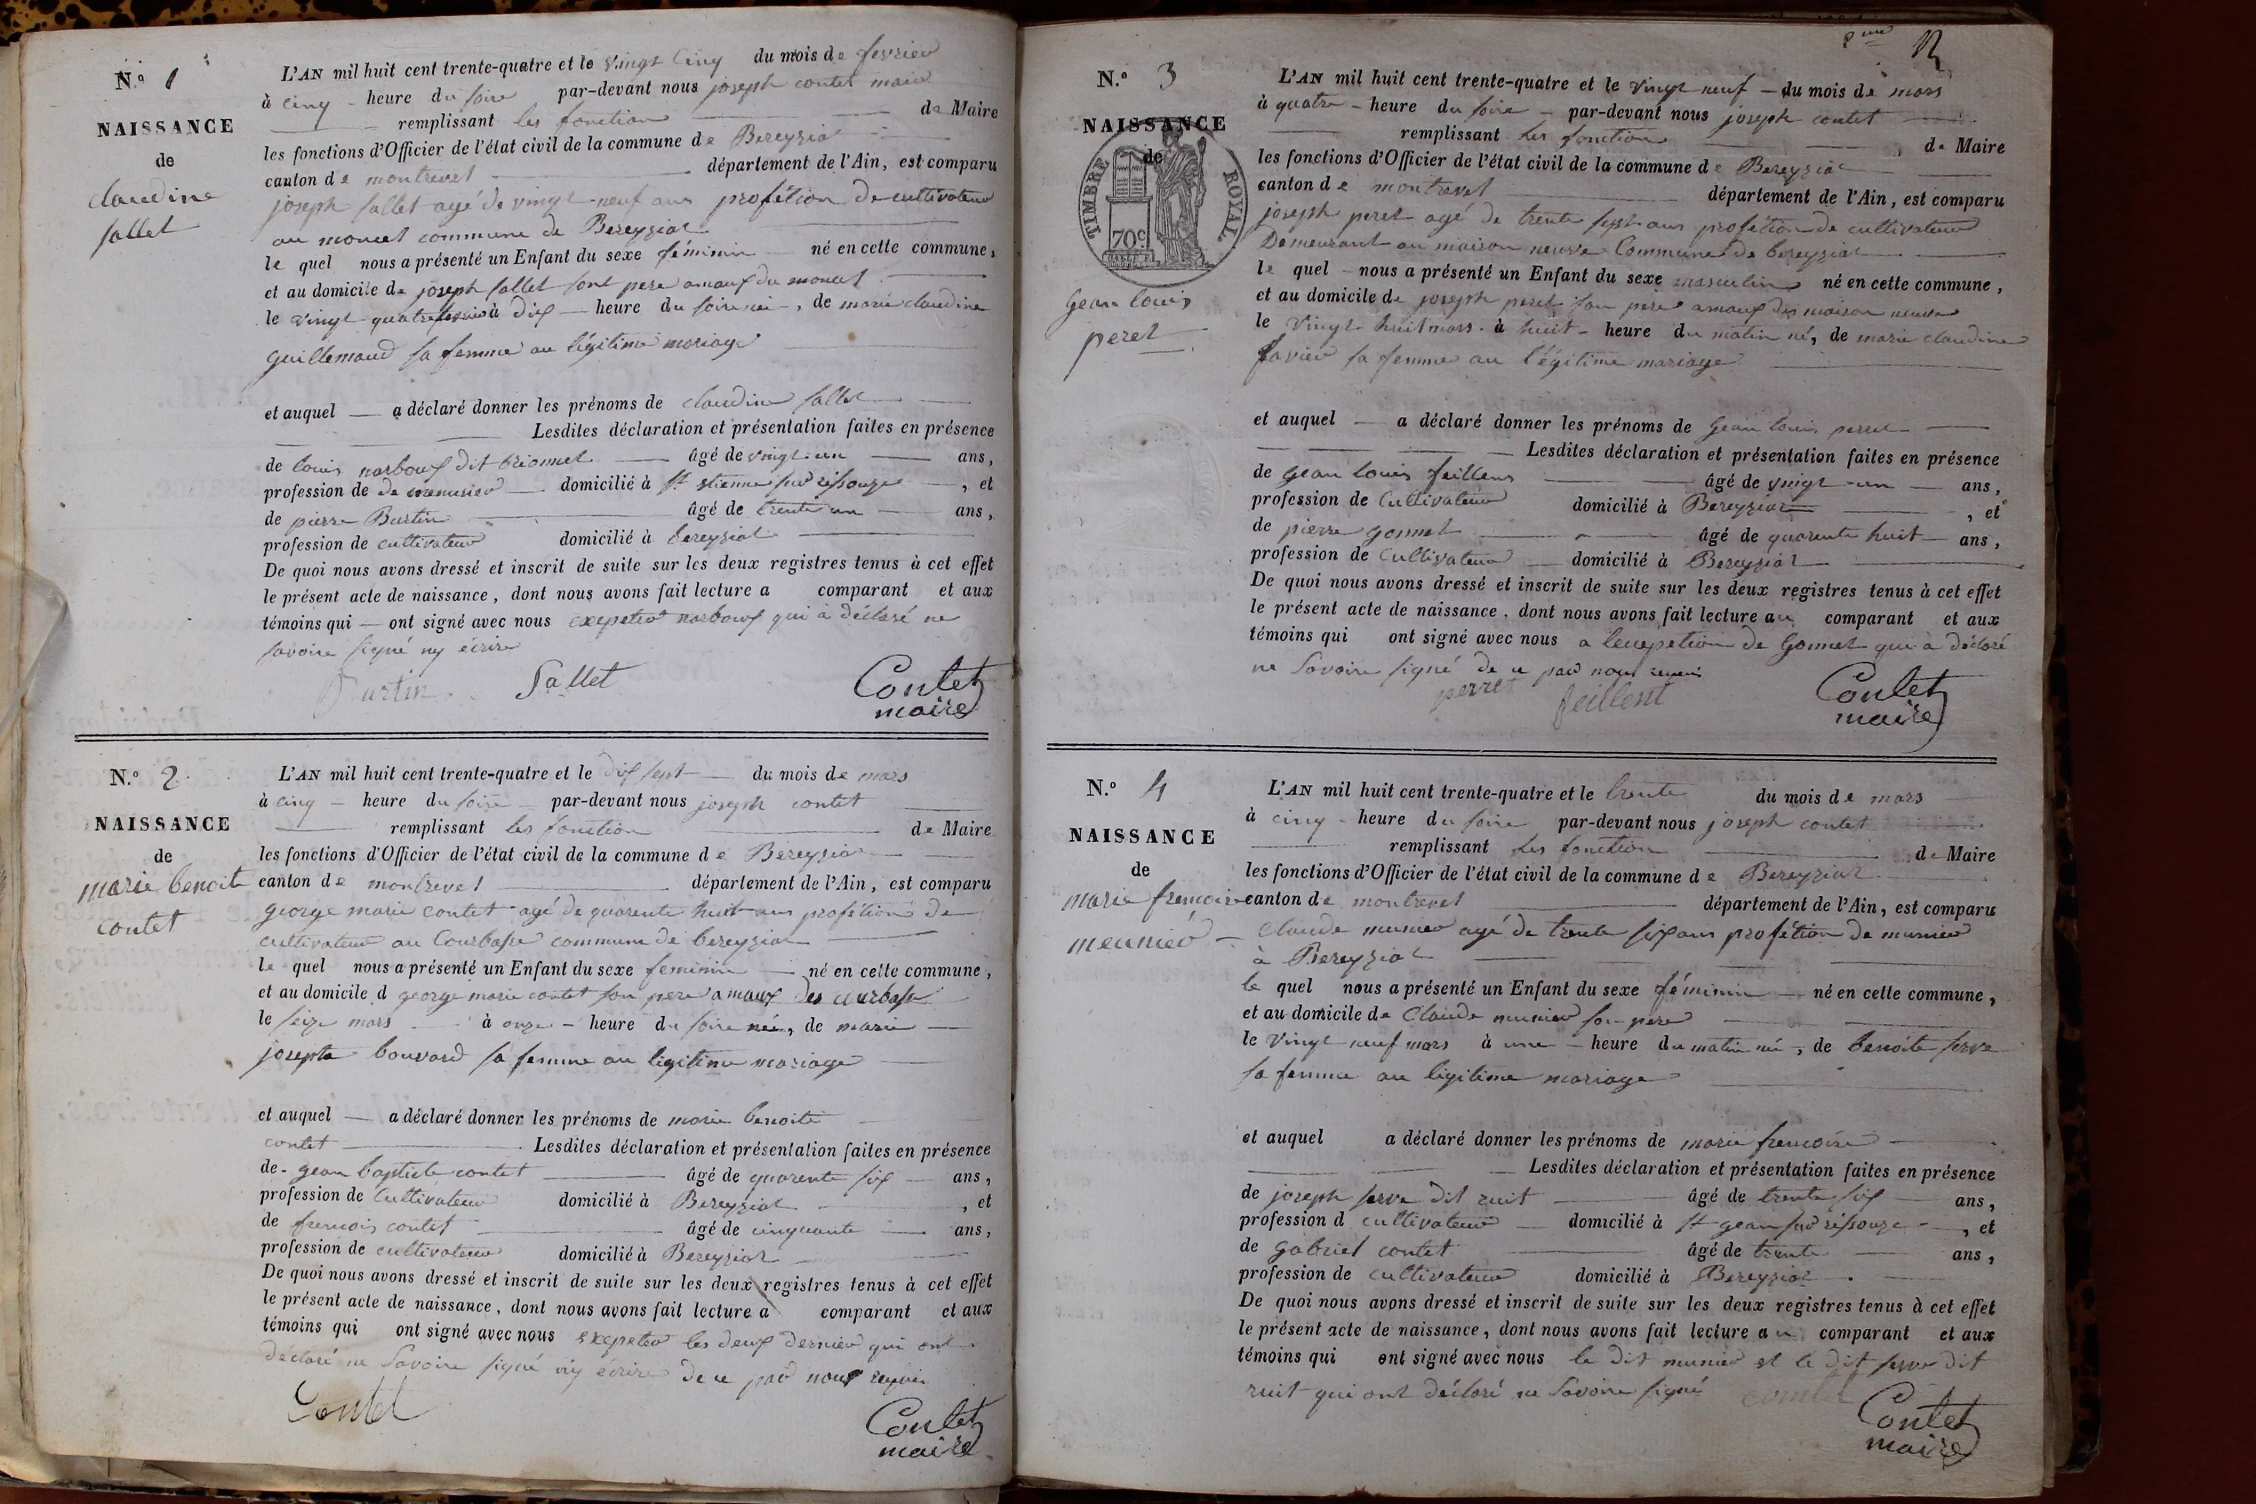 N.o 1
NAISSANCE
de
claudine
sallet
L'AN mil huit cent trente-quatre et le vingt cinq du mois de fevrier
à cinq heure du soire par-devant nous joseph contet maire
remplissant les fonction de Maire
les fonctions d'Officier de l'état civil de la commune de Bereyziat
canton de montrevel département de l'Ain, est comparu
joseph sallet agé de vingt-neuf ans profétion de cultivateur
au moncel commune de Bereyziat
le quel nous a présenté un Enfant du sexe féminin né en cette commune,
et au domicile de joseph sallet sont pere du moncel
le vingt-quatre fevrier à dix heure du soire née, de marie claudine
guillemaud sa femme au légitime mariage
et auquel a déclaré donner les prénoms de claudine sallet
Lesdites déclaration et présentation faites en présence
de louis narboux dit brionnet âgé de vingt-un ans,
profession de de menusier domicilié à St etienne sur resouze, et
de pierre Burtin âgé de trente un ans,
profession de cultivateur domicilié à bereyziat
De quoi nous avons dressé et inscrit de suite sur les deux registres tenus à cet effet
le présent acte de naissance, dont nous avons fait lecture a comparant et aux
témoins qui ont signé avec nous exepeter narboux qui à déclaré ne
savoire signé ny écrire
Burtin Sallet Contet
maire
N.o 2
NAISSANCE
de
marie benoite
contet
L'AN mil huit cent trente-quatre et le dix sept du mois de mars
à cinq heure du soire par-devant nous joseph contet
remplissant les fonction de Maire
les fonctions d'Officier de l'état civil de la commune de Bereyziat
canton de montrevel département de l'Ain, est comparu
george marie contet agé de quarente huit ans profétion de
cultivateur au Courbasse commune de bereyziat
le quel nous a présenté un Enfant du sexe feminin né en cette commune,
et au domicile d george marie contet son pere des courbasse
le seize mars à onze heure du soire née, de marie
josepte bouvard sa femme au légitime mariage
et auquel a déclaré donner les prénoms de marie benoite
contet Lesdites déclaration et présentation faites en présence
de gean baptiste contet âgé de quarente six ans,
profession de Cultivateur domicilié à Bereyziat, et
de francois contet âgé de cinquante ans,
profession de cultivateur domicilié à Bereyziat
De quoi nous avons dressé et inscrit de suite sur les deux registres tenus à cet effet
le présent acte de naissance, dont nous avons fait lecture a comparant et aux
témoins qui ont signé avec nous exepeter les deux dernier qui ont
déclaré ne Savoire signé niy écrire de ce par nous requis
Contet
Contet
maire
2me
N.o 3
NAISSANCE
de
TIMBRE ROYAL
70c
gean louis
peret
L'AN mil huit cent trente-quatre et le vingt neuf du mois de mars
à quatre heure du soire par-devant nous joseph contet
remplissant les fonction de Maire
les fonctions d'Officier de l'état civil de la commune de Bereyziat
canton de montrevel département de l'Ain, est comparu
joseph peret agé de trente sept ans profétion de cultivateur
Demeurant au maison neuve Commune de bereyziat
le quel nous a présenté un Enfant du sexe masculin né en cette commune,
et au domicile de joseph peret son pere maison neuve
le vingt-huit mars à huit heure du matin né, de marie claudine
favier sa femme au légitime mariage
et auquel a déclaré donner les prénoms de gean louis perret
Lesdites déclaration et présentation faites en présence
de gean louis feillens âgé de vingt-un ans,
profession de Cultivateur domicilié à Bereyziat, et
de pierre gonnet âgé de quarente huit ans,
profession de Cultivateur domicilié à Bereyziat
De quoi nous avons dressé et inscrit de suite sur les deux registres tenus à cet effet
le présent acte de naissance, dont nous avons fait lecture au comparant et aux
témoins qui ont signé avec nous a lexepetion de Gonnet qui à déclaré
ne Savoire signé de ce par nous requis
perret feillent Contet
maire
N.o 4
NAISSANCE
de
marie
meunier
L'AN mil huit cent trente-quatre et le trente du mois de mars
à cinq heure du soire par-devant nous joseph contet
remplissant les fonction de Maire
les fonctions d'Officier de l'état civil de la commune de Bereyziat
canton de montrevel département de l'Ain, est comparu
claude munier agé de trente six ans profétion de munier
à Bereyziat
le quel nous a présenté un Enfant du sexe féminin né en cette commune,
et au domicile de Claude munier son pere
le vingt neuf mars à une heure du matin née, de benoite serve
sa femme au légitime mariage
et auquel a déclaré donner les prénoms de marie
Lesdites déclaration et présentation faites en présence
de joseph serve dit ruit âgé de trente six ans,
profession d cultivateur domicilié à St gean sur résouze, et
de gabriel contet âgé de trente ans,
profession de cultivateur domicilié à Bereyziat
De quoi nous avons dressé et inscrit de suite sur les deux registres tenus à cet effet
le présent acte de naissance, dont nous avons fait lecture au comparant et aux
témoins qui ont signé avec nous le dit munier et le dit serve dit
ruit qui ont déclaré ne Savoire signé contet
Contet
maire